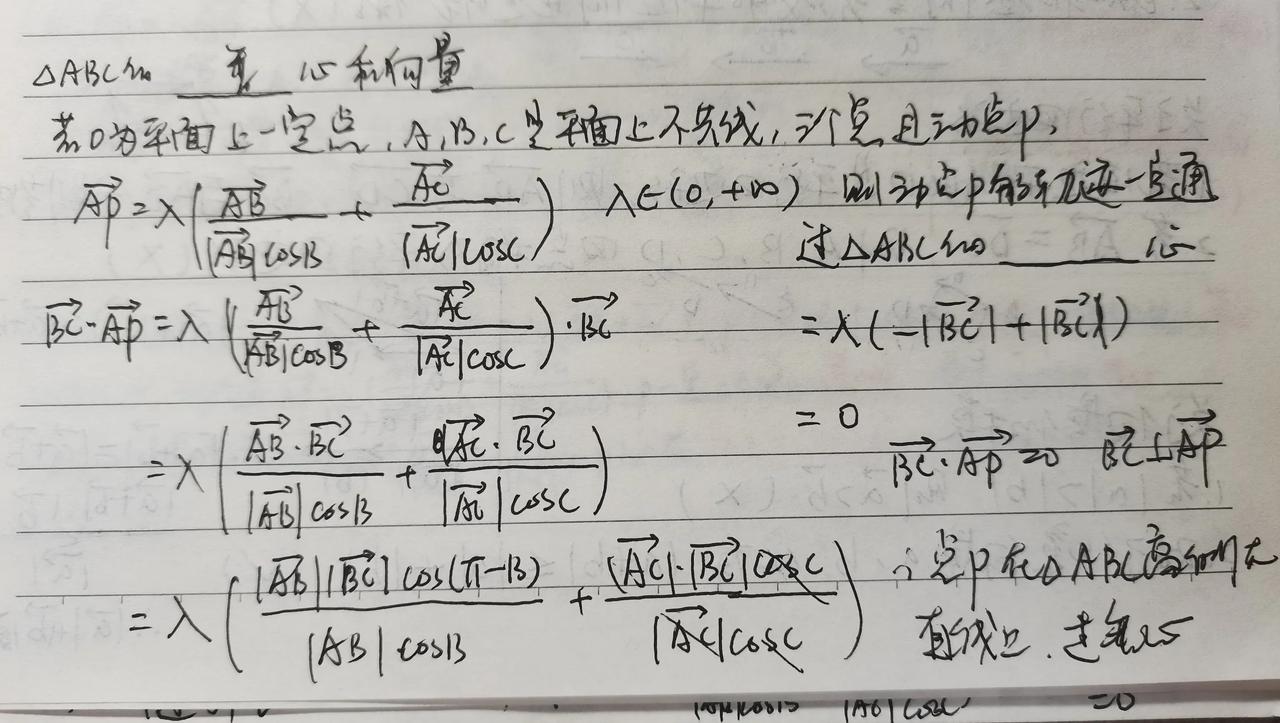 △ABC的 垂 心和向量
若O为平面上一定点,A,B,C是平面上不共线,三个点且动点P,
$\overrightarrow{AP}=\lambda\left(\frac{\overrightarrow{AB}}{|\overrightarrow{AB}|\cos B}+\frac{\overrightarrow{AC}}{|\overrightarrow{AC}|\cos C}\right)$ λ∈(0,+∞) 则动点P的轨迹一定通
过△ABC的 ______ 心
$\overrightarrow{BC}\cdot\overrightarrow{AP}=\lambda\left(\frac{\overrightarrow{AB}}{|\overrightarrow{AB}|\cos B}+\frac{\overrightarrow{AC}}{|\overrightarrow{AC}|\cos C}\right)\cdot\overrightarrow{BC}$
$=\lambda\left(\frac{\overrightarrow{AB}\cdot\overrightarrow{BC}}{|\overrightarrow{AB}|\cos B}+\frac{\overrightarrow{AC}\cdot\overrightarrow{BC}}{|\overrightarrow{AC}|\cos C}\right)$
$=\lambda\left(\frac{|\overrightarrow{AB}||\overrightarrow{BC}|\cos(\pi-B)}{|AB|\cos B}+\frac{|\overrightarrow{AC}|\cdot|\overrightarrow{BC}|\cos C}{|\overrightarrow{AC}|\cos C}\right)$
$=\lambda(-|\overrightarrow{BC}|+|\overrightarrow{BC}|)$
=0
$\overrightarrow{BC}\cdot\overrightarrow{AP}=0$ $\overrightarrow{BC}\perp\overrightarrow{AP}$
∴点P在△ABC高的所在
直线上.过垂心
=0